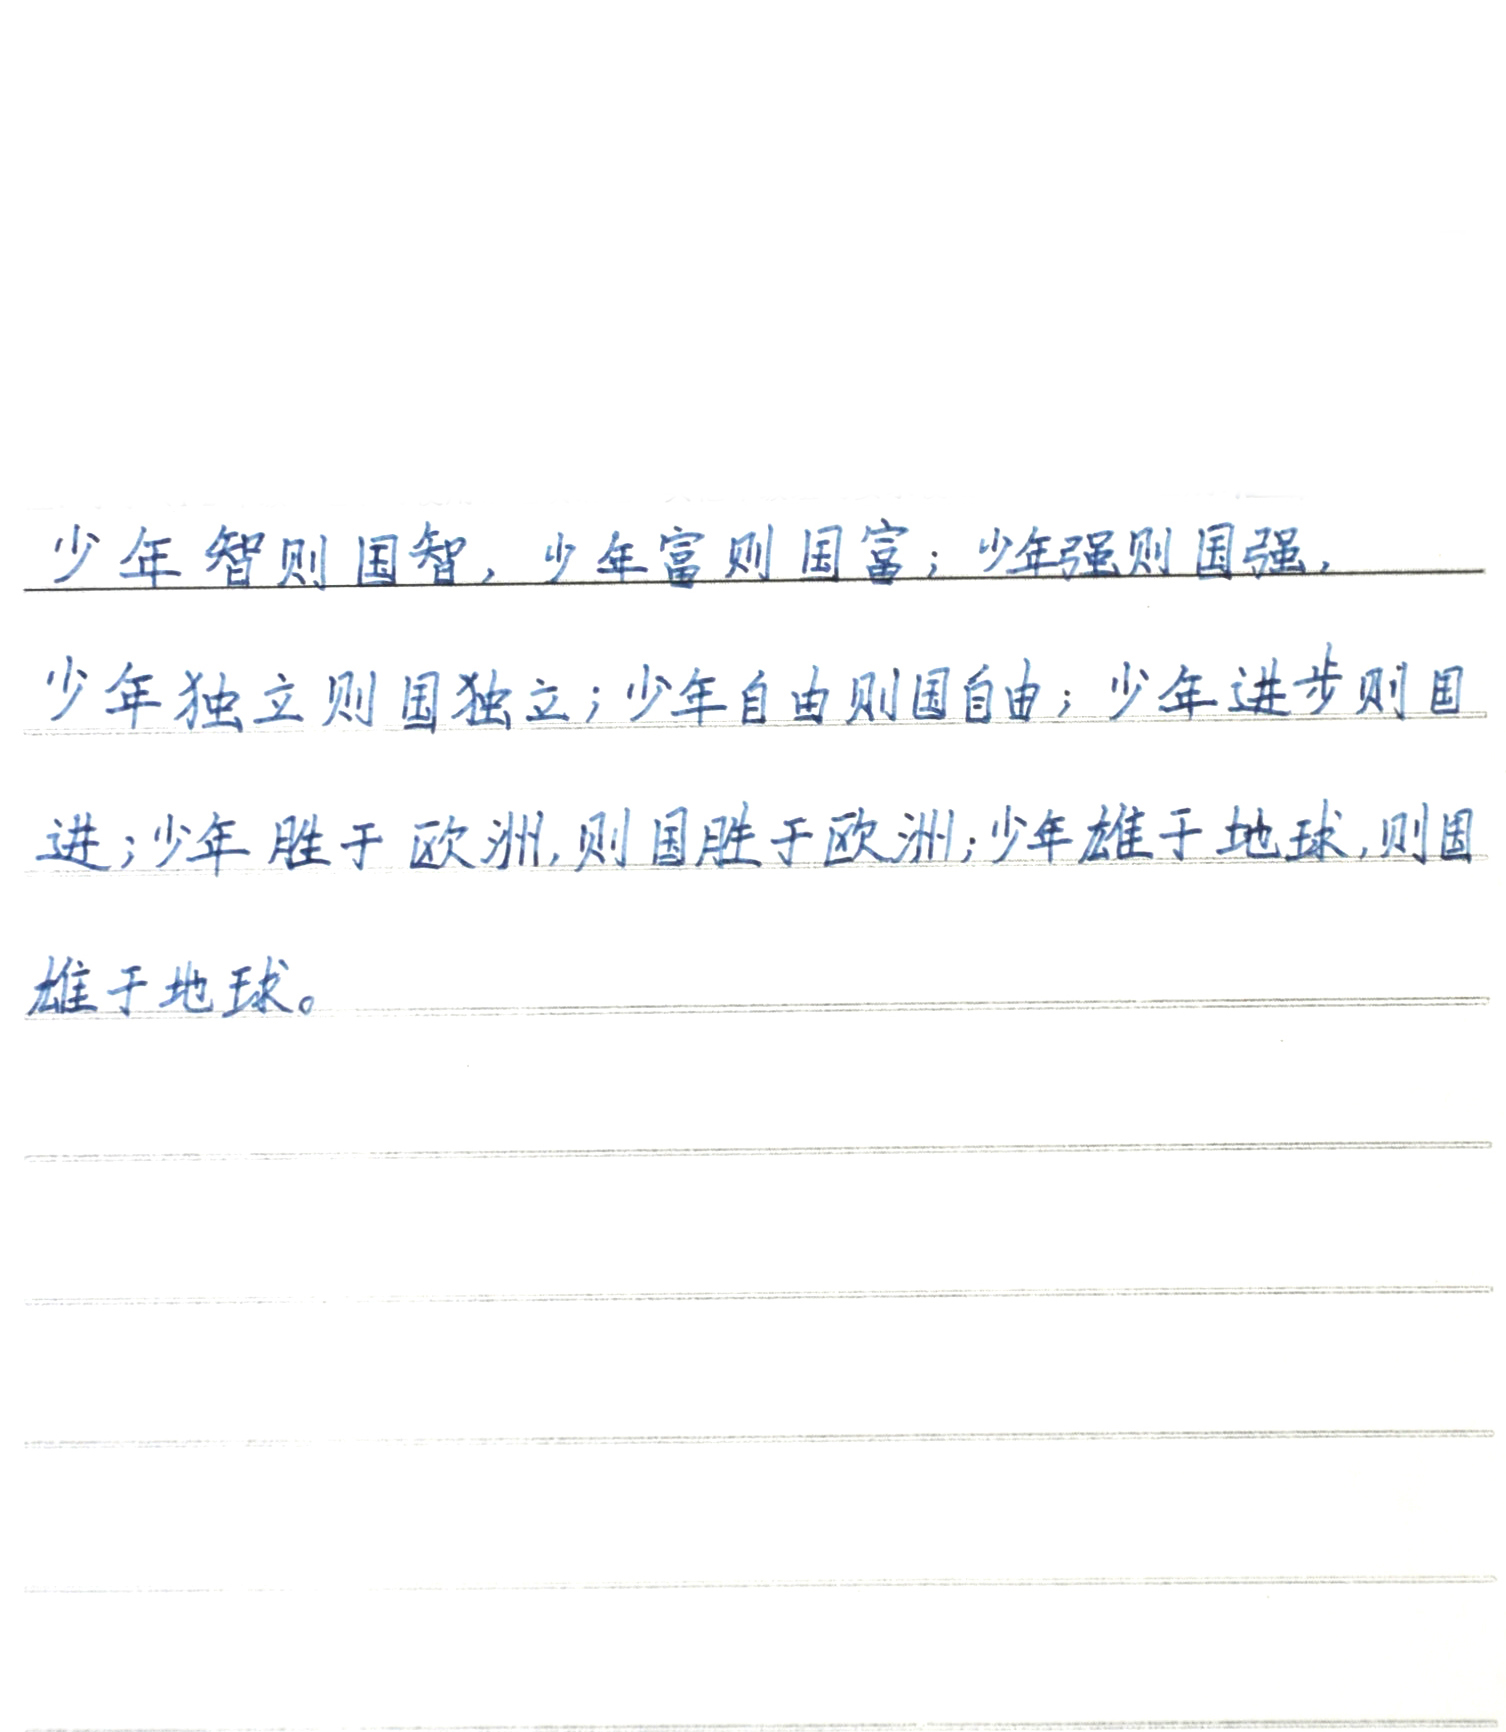 少年智则国智，少年富则国富；少年强则国强，
少年独立则国独立；少年自由则国自由；少年进步则国
进；少年胜于欧洲，则国胜于欧洲；少年雄于地球，则国
雄于地球。